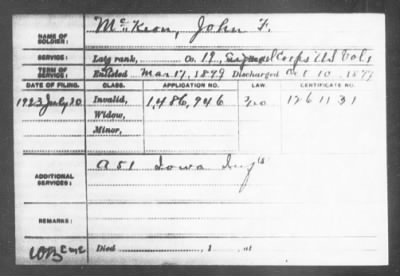 NAME OF SOLDIER: McKeon, John F.
SERVICE: Late rank, Co. 19, Signal Corps US Vols
TERM OF SERVICE: Enlisted Mar 17, 1899 Discharged 10, 1899
DATE OF FILING. CLASS. APPLICATION NO. LAW. CERTIFICATE NO.
1923 July 20 Invalid, 1,486,946 1261131
Widow,
Minor,
ADDITIONAL SERVICES: A 51 Iowa Inf
REMARKS:
Died , 1 , at